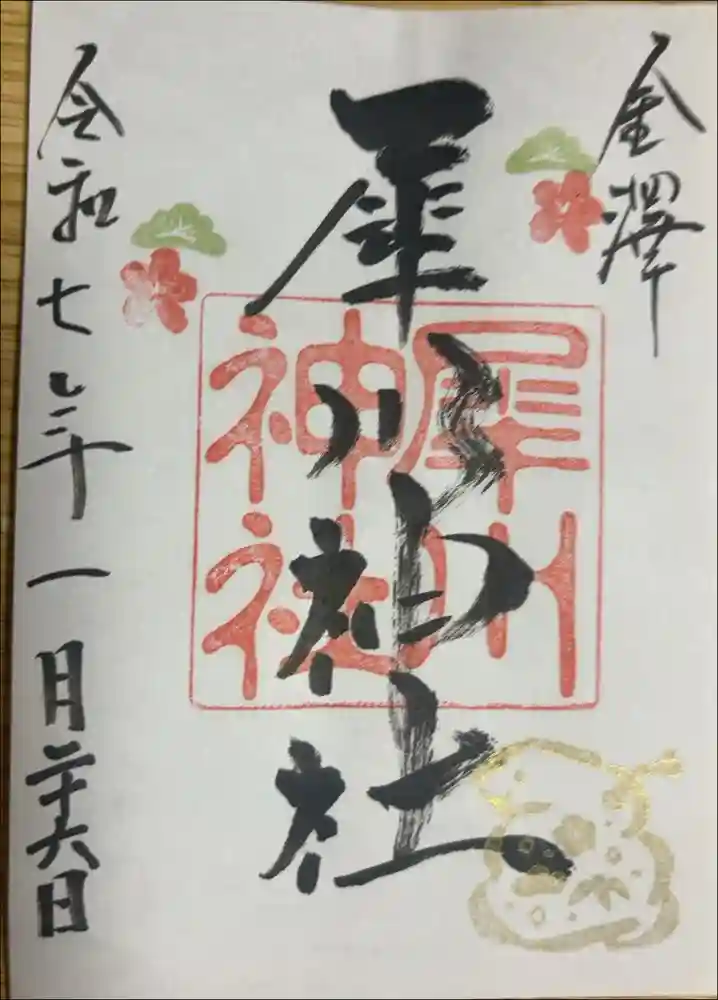 金澤
犀川神社
犀川
神社
令和七年一月二十六日